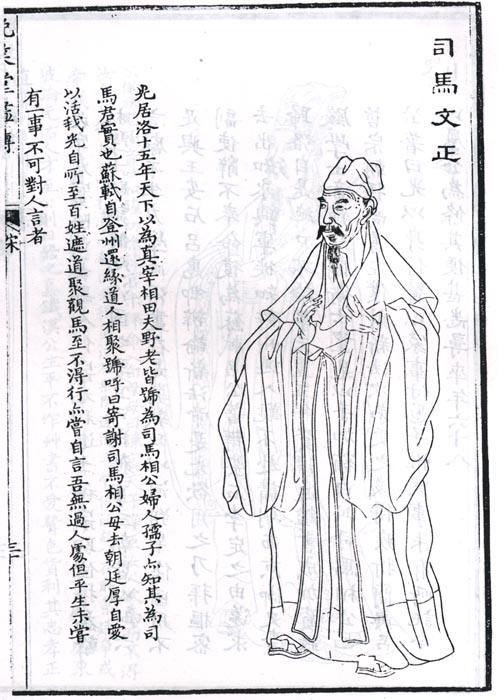 司馬文正
光居洛十五年天下以為真宰相田夫野老皆號為司馬相公婦人孺子亦知其為司
馬君實也蘇軾自登州還緣道人相聚號呼曰寄謝司馬相公毋去朝廷厚自愛
以活我光自所至百姓遮道聚觀馬至不得行亦嘗自言吾無過人處但平生未嘗
有事不可對人言者
宋